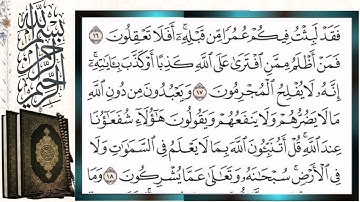 بسم الله الرحمن الرحيم
فَقَدْ لَبِثْتُ فِيكُمْ عُمُرًا مِّن قَبْلِهِۦٓ ۚ أَفَلَا تَعْقِلُونَ ١٦
فَمَنْ أَظْلَمُ مِمَّنِ ٱفْتَرَىٰ عَلَى ٱللَّهِ كَذِبًا أَوْ كَذَّبَ بِـَٔايَـٰتِهِۦٓ ۚ
إِنَّهُۥ لَا يُفْلِحُ ٱلْمُجْرِمُونَ ١٧ وَيَعْبُدُونَ مِن دُونِ ٱللَّهِ
مَا لَا يَضُرُّهُمْ وَلَا يَنفَعُهُمْ وَيَقُولُونَ هَـٰٓؤُلَآءِ شُفَعَـٰٓؤُنَا
عِندَ ٱللَّهِ ۚ قُلْ أَتُنَبِّـُٔونَ ٱللَّهَ بِمَا لَا يَعْلَمُ فِى ٱلسَّمَـٰوَٰتِ وَلَا
فِى ٱلْأَرْضِ ۚ سُبْحَـٰنَهُۥ وَتَعَـٰلَىٰ عَمَّا يُشْرِكُونَ ١٨ وَمَا